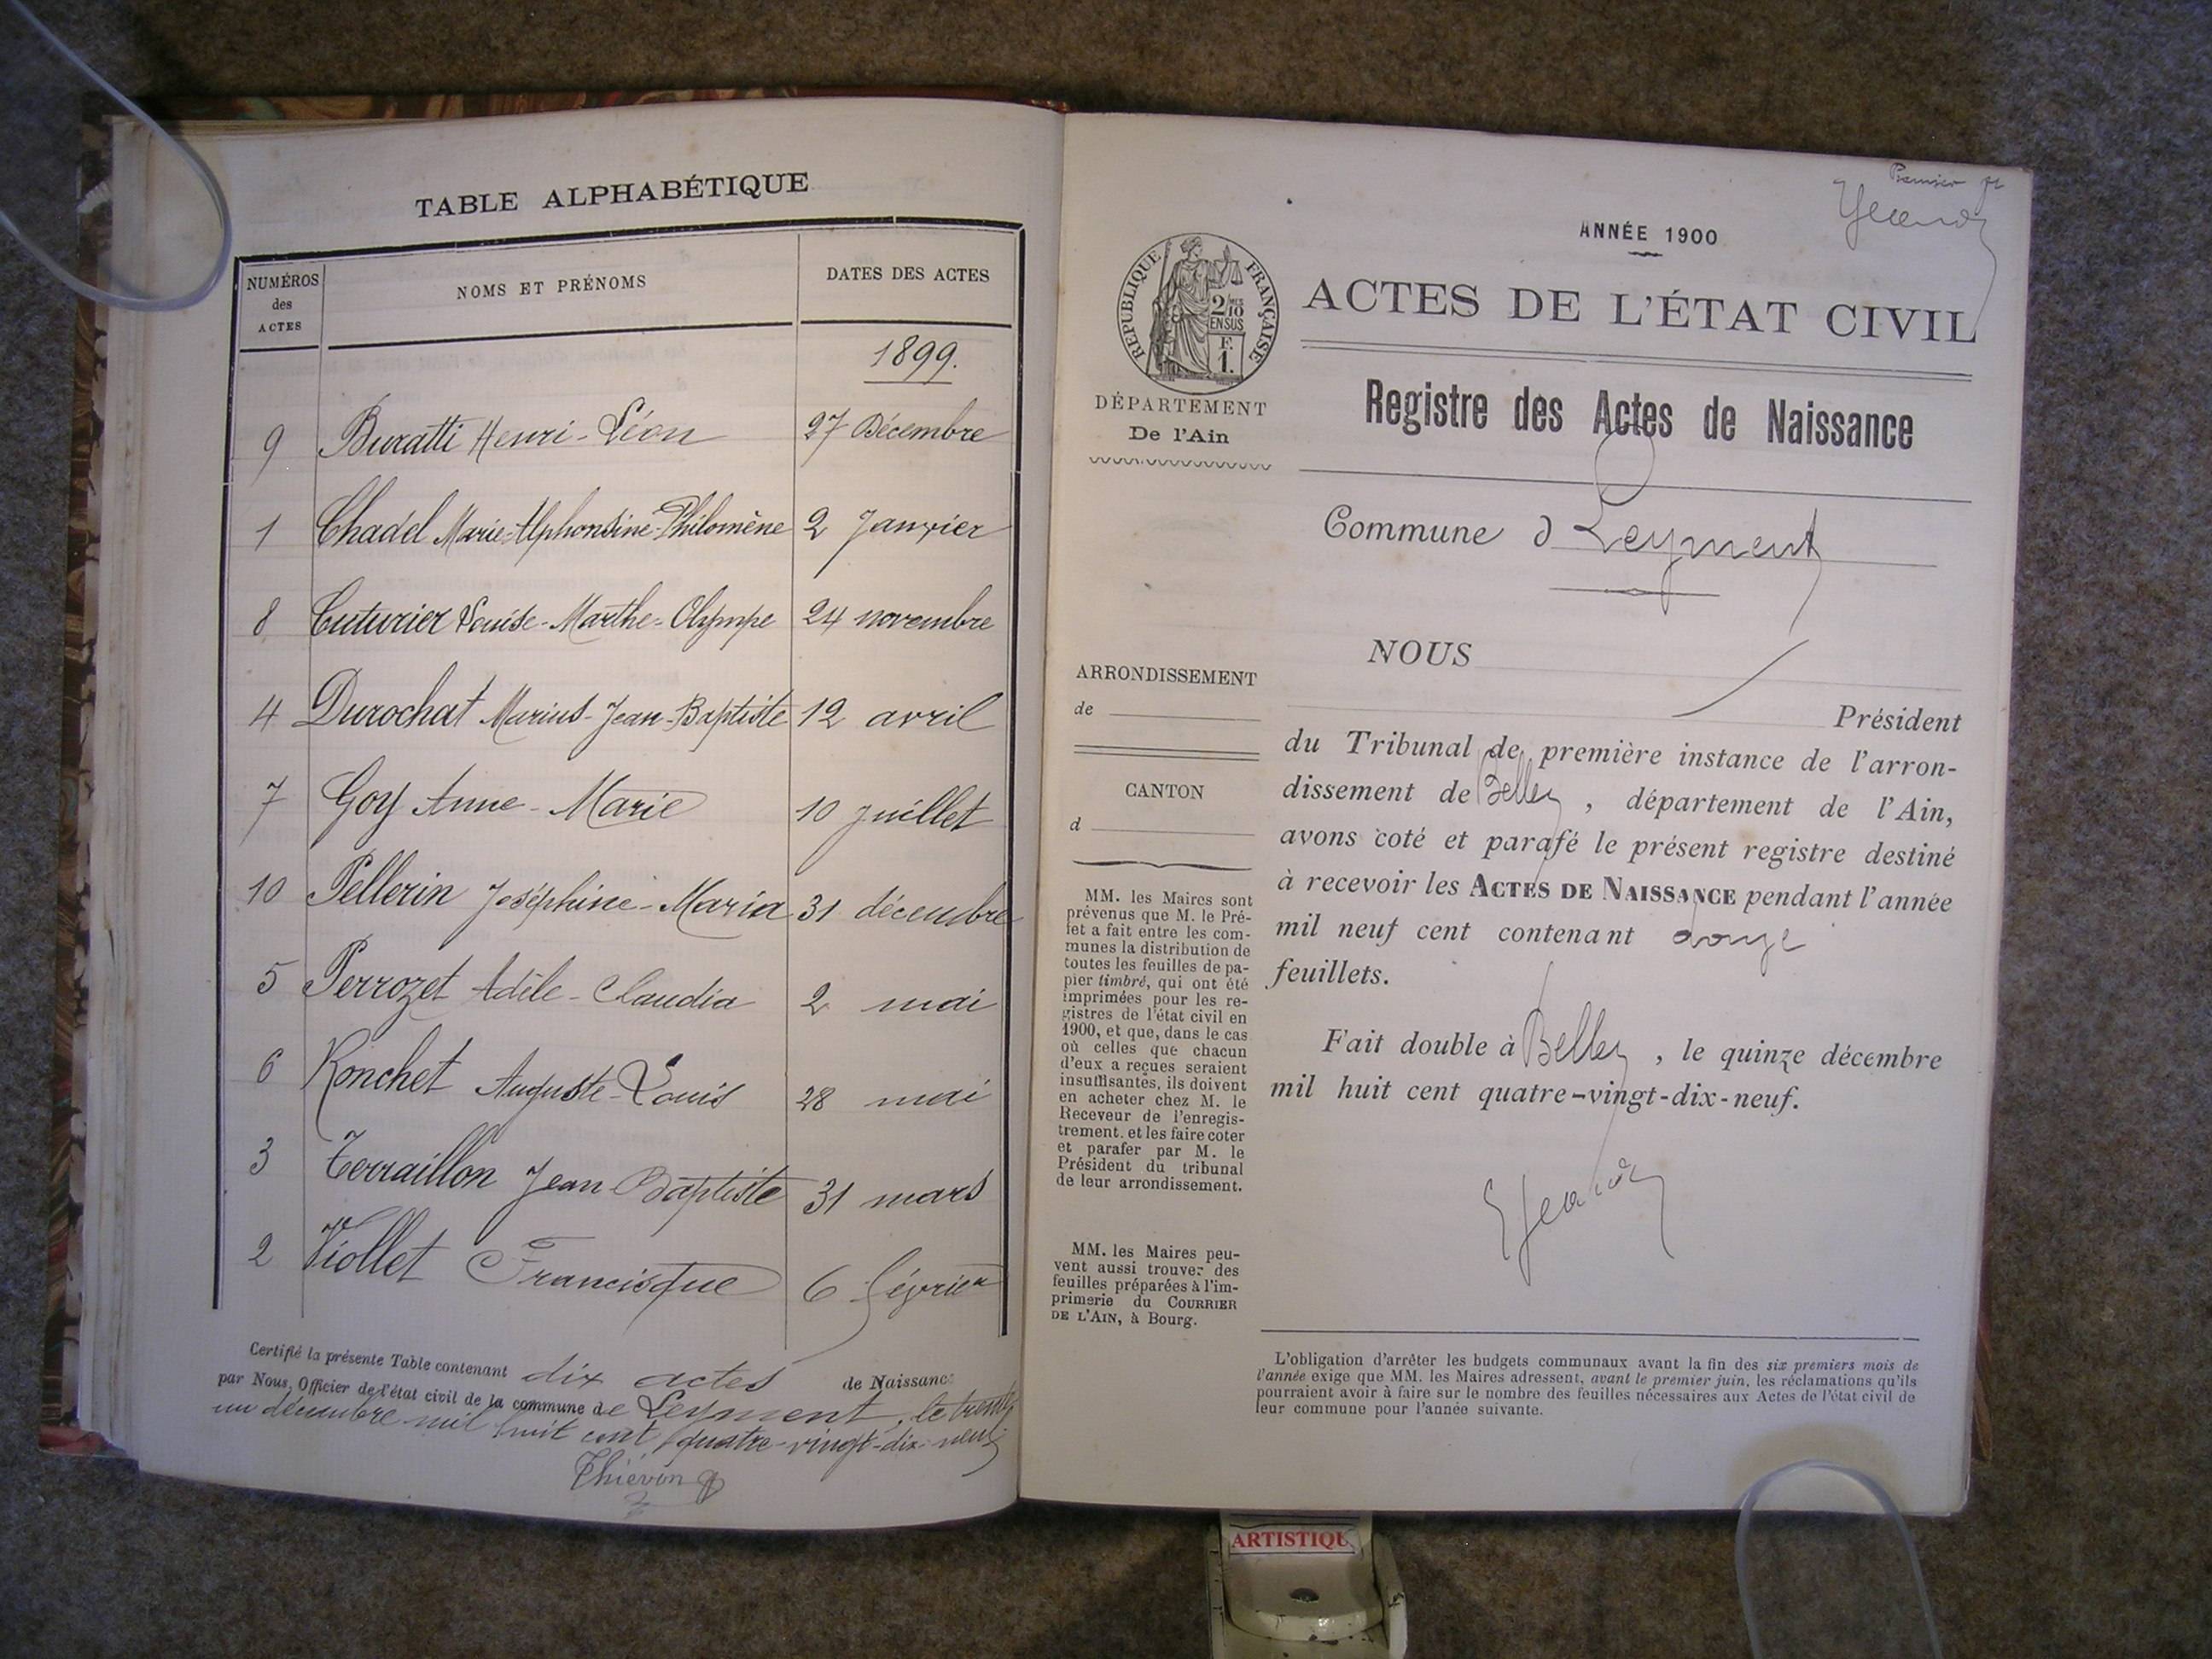 TABLE ALPHABÉTIQUE
NUMÉROS des ACTES
NOMS ET PRÉNOMS
DATES DES ACTES
1899.
9 Buratti Henri-Léon 27 Décembre
1 Chadel Marie-Alphonsine-Philomène 2 Janvier
8 Cuturier Louise-Marthe-Olympe 24 novembre
4 Durochat Marius-Jean-Baptiste 12 avril
7 Goy Anne-Marie 10 Juillet
10 Pellerin Joséphine-Maria 31 décembre
5 Perrozet Adèle-Claudia 2 mai
6 Ronchet Auguste-Louis 28 mai
3 Terraillon Jean-Baptiste 31 mars
2 Viollet Francisque 6 février
Certifié la présente Table contenant dix actes de Naissance
par Nous, Officier de l'état civil de la commune de Leyment, le trente
un décembre mil huit cent quatre-vingt-dix-neuf
Thiévon
Premier ft
ANNÉE 1900
RÉPUBLIQUE FRANÇAISE
2/10
EN SUS
F.
1.
ACTES DE L'ÉTAT CIVIL
DÉPARTEMENT
De l'Ain
Registre des Actes de Naissance
Commune d Leyment
NOUS
Président
du Tribunal de première instance de l'arron-
dissement de Belley, département de l'Ain,
avons coté et parafé le présent registre destiné
à recevoir les ACTES DE NAISSANCE pendant l'année
mil neuf cent contenant douze
feuillets.
Fait double à Belley, le quinze décembre
mil huit cent quatre-vingt-dix-neuf.
ARRONDISSEMENT
de
CANTON
d
MM. les Maires sont
prévenus que M. le Pré-
fet a fait entre les com-
munes la distribution de
toutes les feuilles de pa-
pier timbré, qui ont été
imprimées pour les re-
gistres de l'état civil en
1900, et que, dans le cas
où celles que chacun
d'eux a reçues seraient
insuffisantes, ils doivent
en acheter chez M. le
Receveur de l'enregis-
trement. et les faire coter
et parafer par M. le
Président du tribunal
de leur arrondissement.
MM. les Maires peu-
vent aussi trouver des
feuilles préparées à l'im-
primerie du COURRIER
DE L'AIN, à Bourg.
L'obligation d'arrêter les budgets communaux avant la fin des six premiers mois de
l'année exige que MM. les Maires adressent, avant le premier juin, les réclamations qu'ils
pourraient avoir à faire sur le nombre des feuilles nécessaires aux Actes de l'état civil de
leur commune pour l'année suivante.
ARTISTIQU